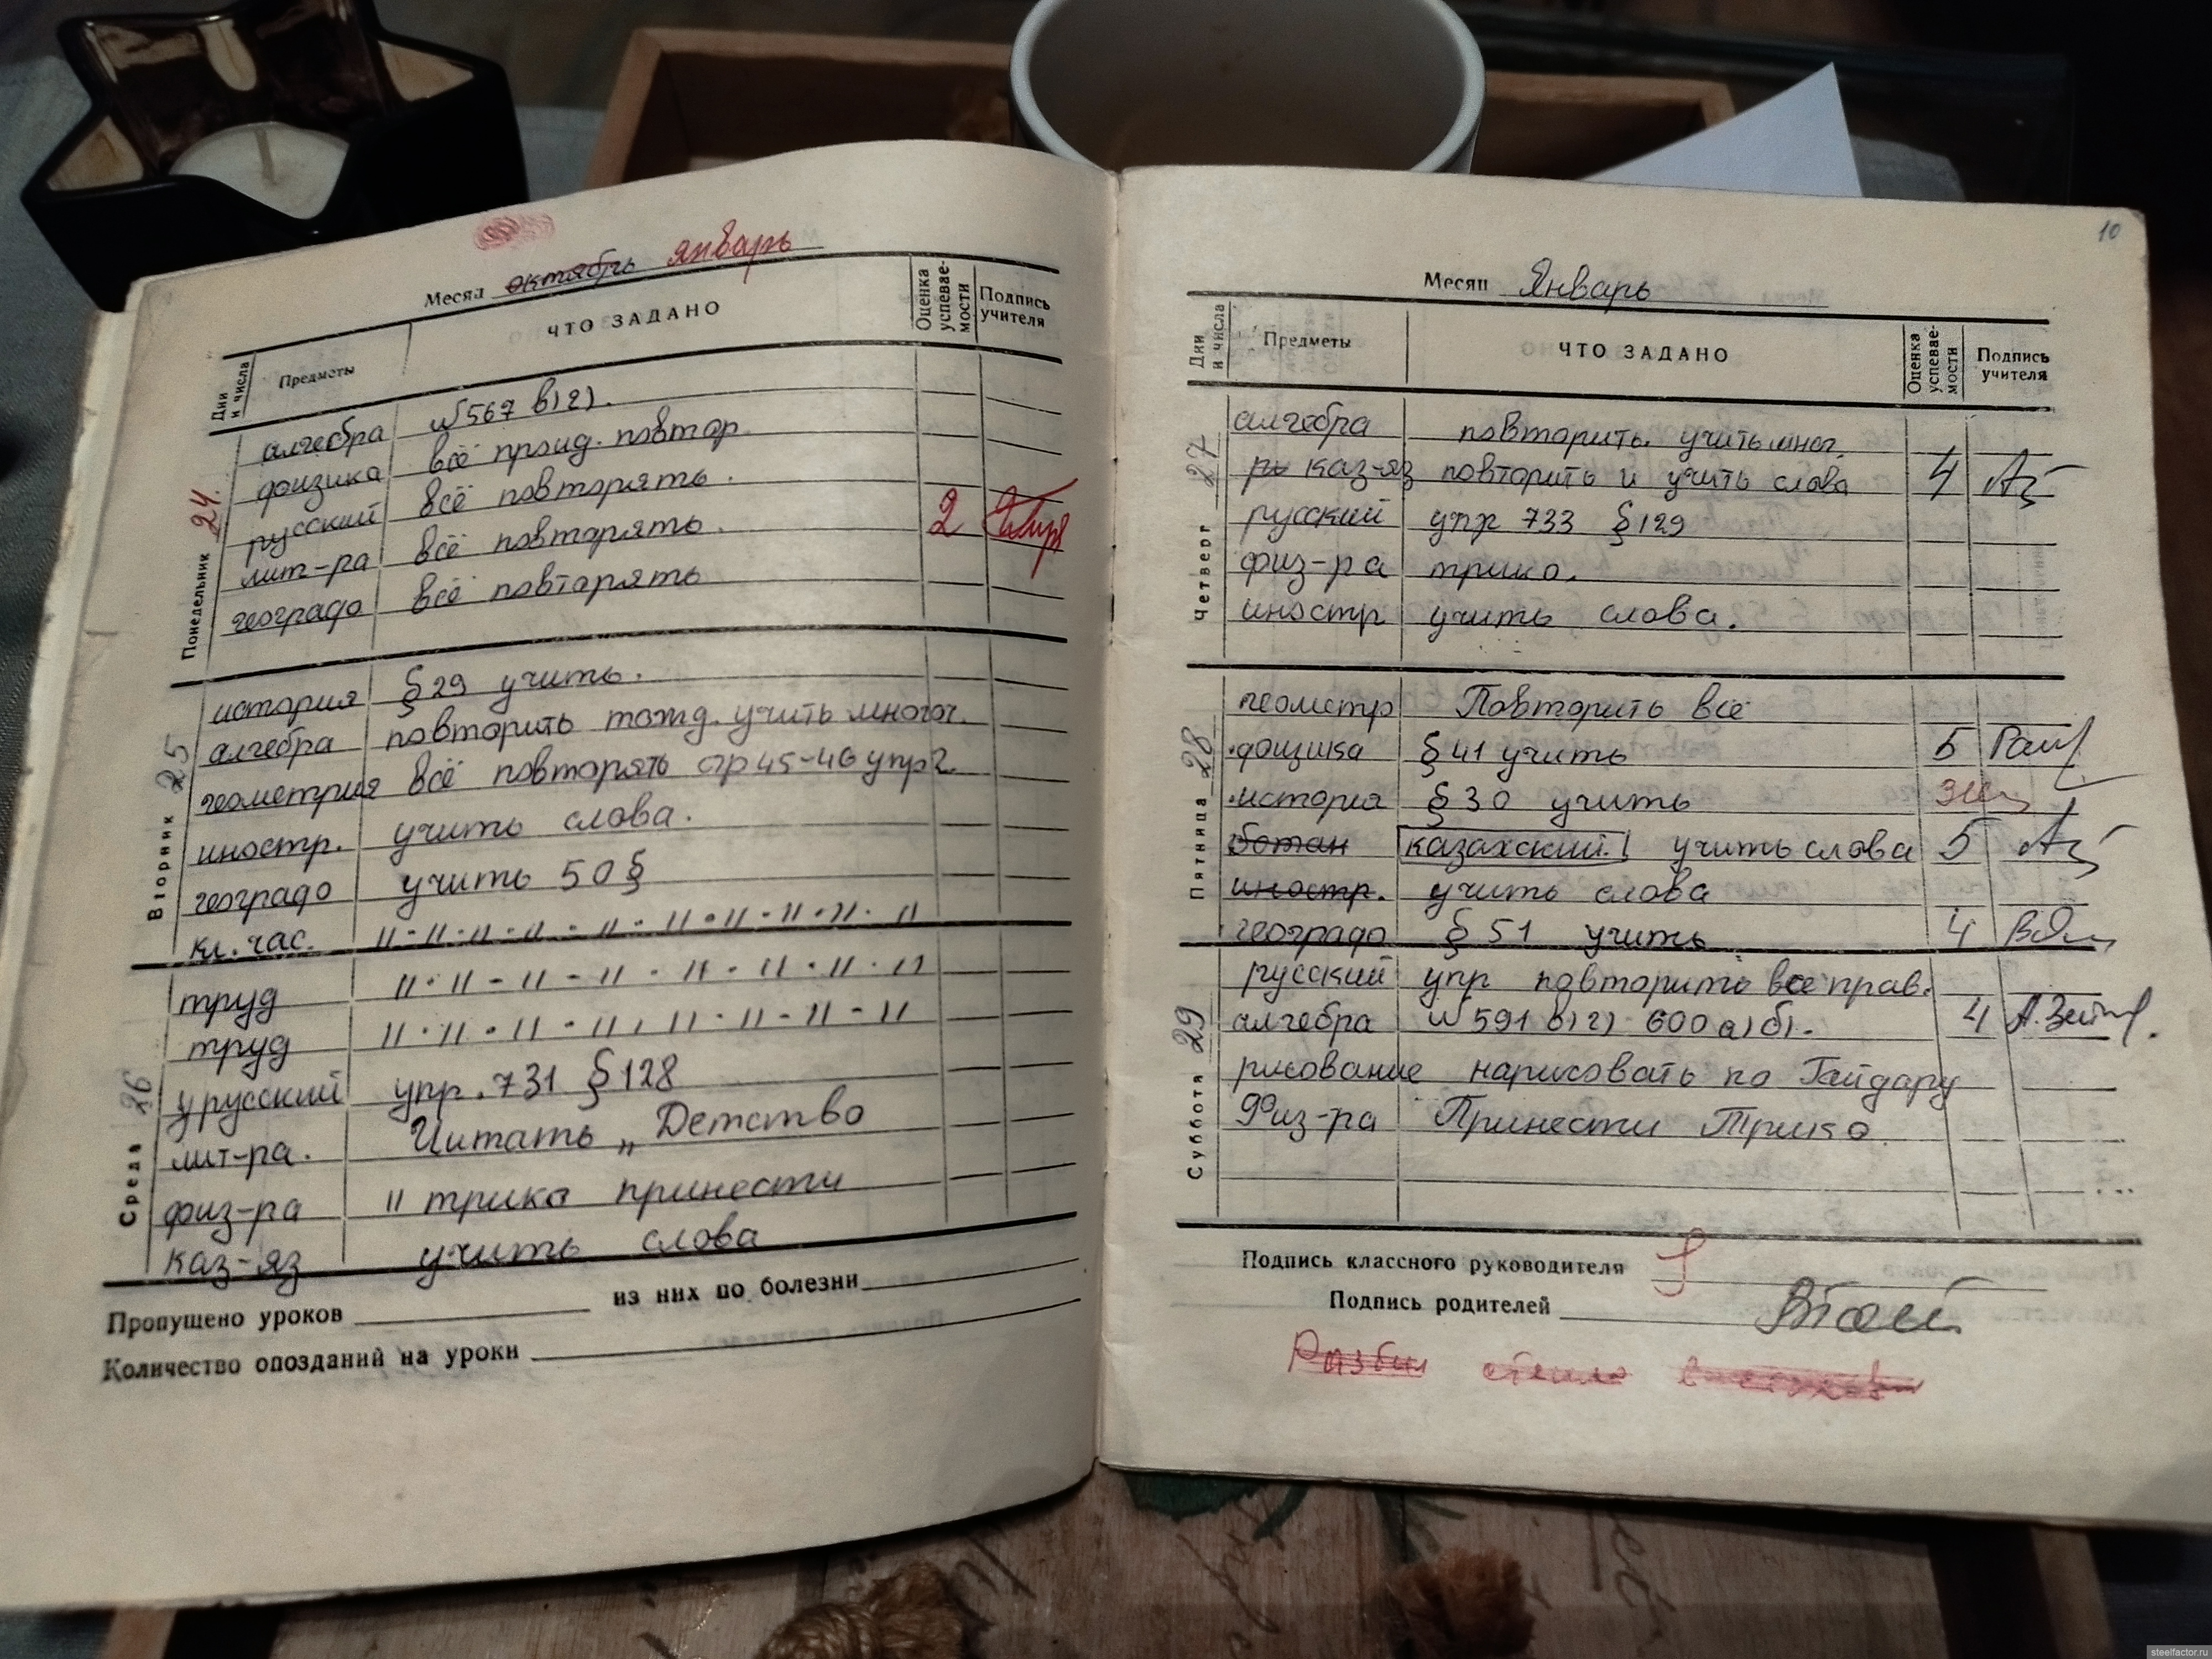 Месяц октябрь январь
Дни и числа Предметы ЧТО ЗАДАНО Оценка успевае-мости Подпись учителя
Понедельник 24.
алгебра №567 в)г).
физика всё пройд. повтор
русский всё повторять.
лит-ра всё повторять. 2
географ всё повторять
Вторник 25
история §29 учить.
алгебра повторить тожд. учить многоч.
геометрия всё повторять стр 45-46 упр2
иностр. учить слова.
географ учить 50§
кл. час. 11-11-11-11-11-11-11-11-11
Среда 26
труд 11-11-11-11-11-11-11-11
труд 11-11-11-11-11-11-11-11
русский упр. 731 §128
лит-ра. Читать „Детство
физ-ра 11 трико принести
каз-яз учить слова
Пропущено уроков из них по болезни
Количество опозданий на уроки
10
Месяц Январь
Дни и числа Предметы ЧТО ЗАДАНО Оценка успевае-мости Подпись учителя
Четверг 27
алгебра повторить. учить мног.
ру каз-яз повторить и учить слова 4
русский упр 733 §129
физ-ра трико.
иностр учить слова.
Пятница 28
геометр Повторить всё
физика §41 учить 5
история §30 учить
ботан казахский! учить слова 5
иностр. учить слова
географ §51 учить 4
Суббота 29
русский упр повторить все прав.
алгебра №591 в)г) 600 а)б). 4
рисование нарисовать по Гайдару
Физ-ра Принести Трико
Подпись классного руководителя
Подпись родителей
Разбил стекло в
steelfactor.ru